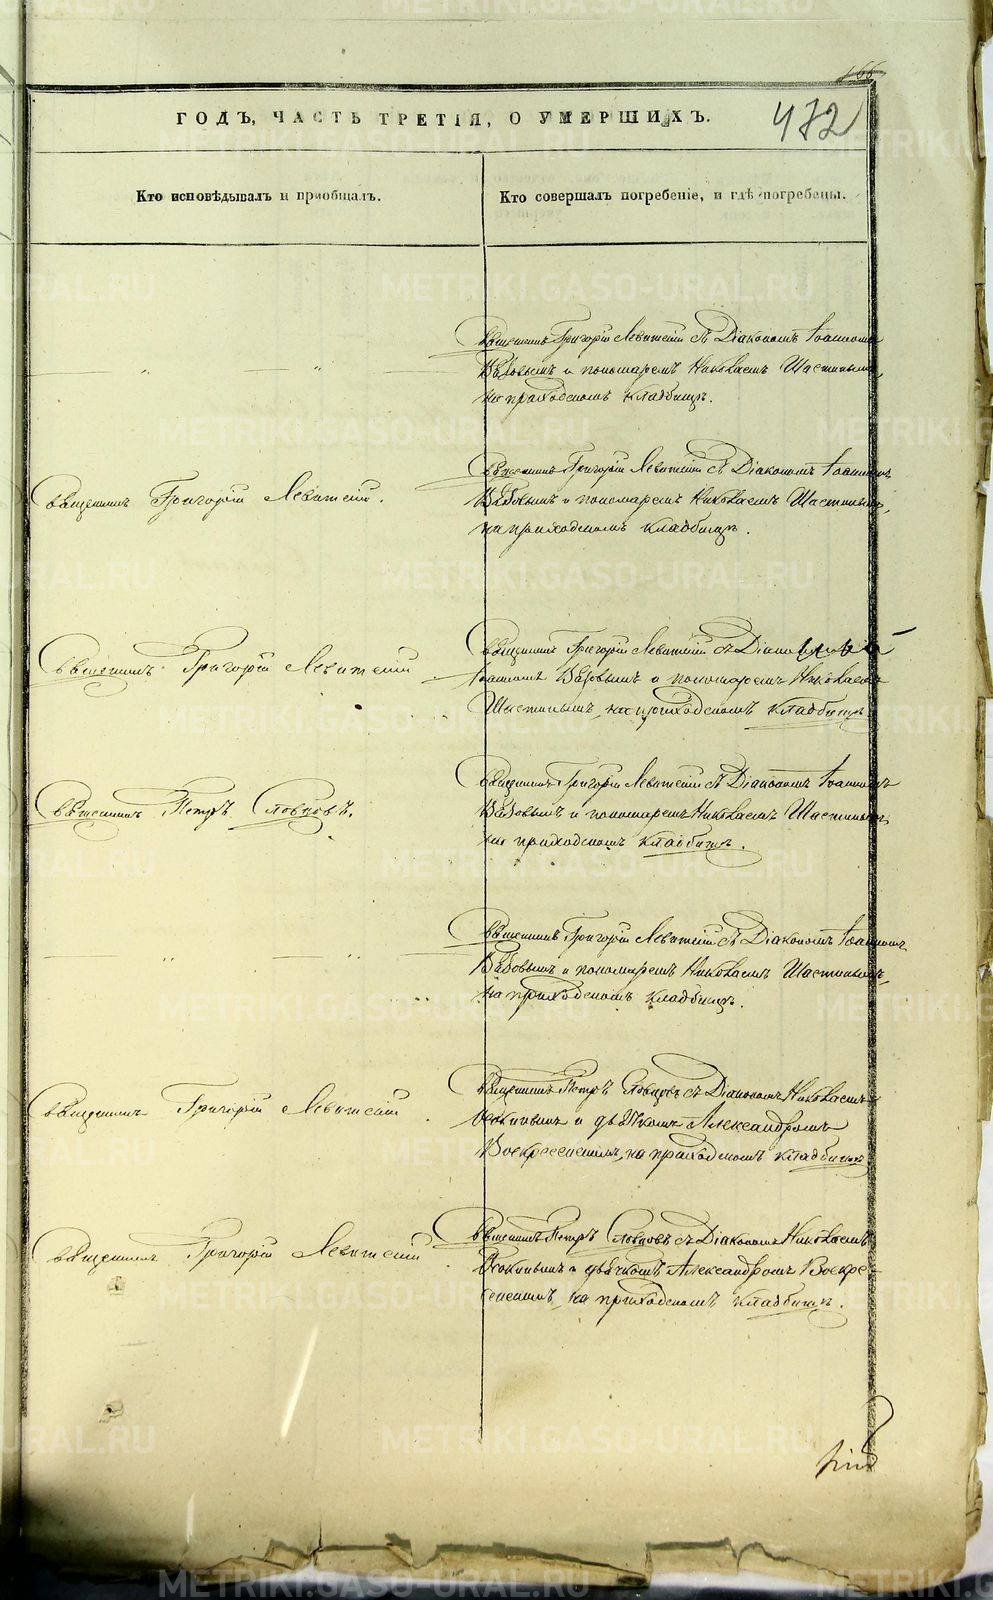 166
ГОДЪ, ЧАСТЬ ТРЕТІЯ, О УМЕРШИХЪ.
472
Кто исповѣдывалъ и пріобщалъ.
Кто совершалъ погребеніе, и гдѣ погребены.
Священникъ Григорій Левитскій съ Діакономъ Іоанномъ
и пономаремъ Николаемъ
на приходскомъ кладбищѣ.
Священникъ Григорій Левитскій.
Священникъ Григорій Левитскій съ Діакономъ Іоанномъ
и пономаремъ Николаемъ
на приходскомъ кладбищѣ.
Священникъ Григорій Левитскій
Священникъ Григорій Левитскій съ Діакономъ
Іоанномъ и пономаремъ Николаемъ
на приходскомъ кладбищѣ
Священникъ Петръ Словцовъ.
Священникъ Григорій Левитскій съ Діакономъ Іоанномъ
и пономаремъ Николаемъ
на приходскомъ кладбищѣ.
Священникъ Григорій Левитскій съ Діакономъ Іоанномъ
и пономаремъ Николаемъ
на приходскомъ кладбищѣ.
Священникъ Григорій Левитскій
Священникъ Петръ Словцовъ съ Діакономъ Николаемъ
и дьячкомъ Александромъ
Воскресенскимъ, на приходскомъ кладбищѣ
Священникъ Григорій Левитскій
Священникъ Петръ Словцовъ съ Діакономъ Николаемъ
и дьячкомъ Александромъ Воскре-
сенскимъ, на приходскомъ кладбищѣ.
METRIKI.GASO-URAL.RU